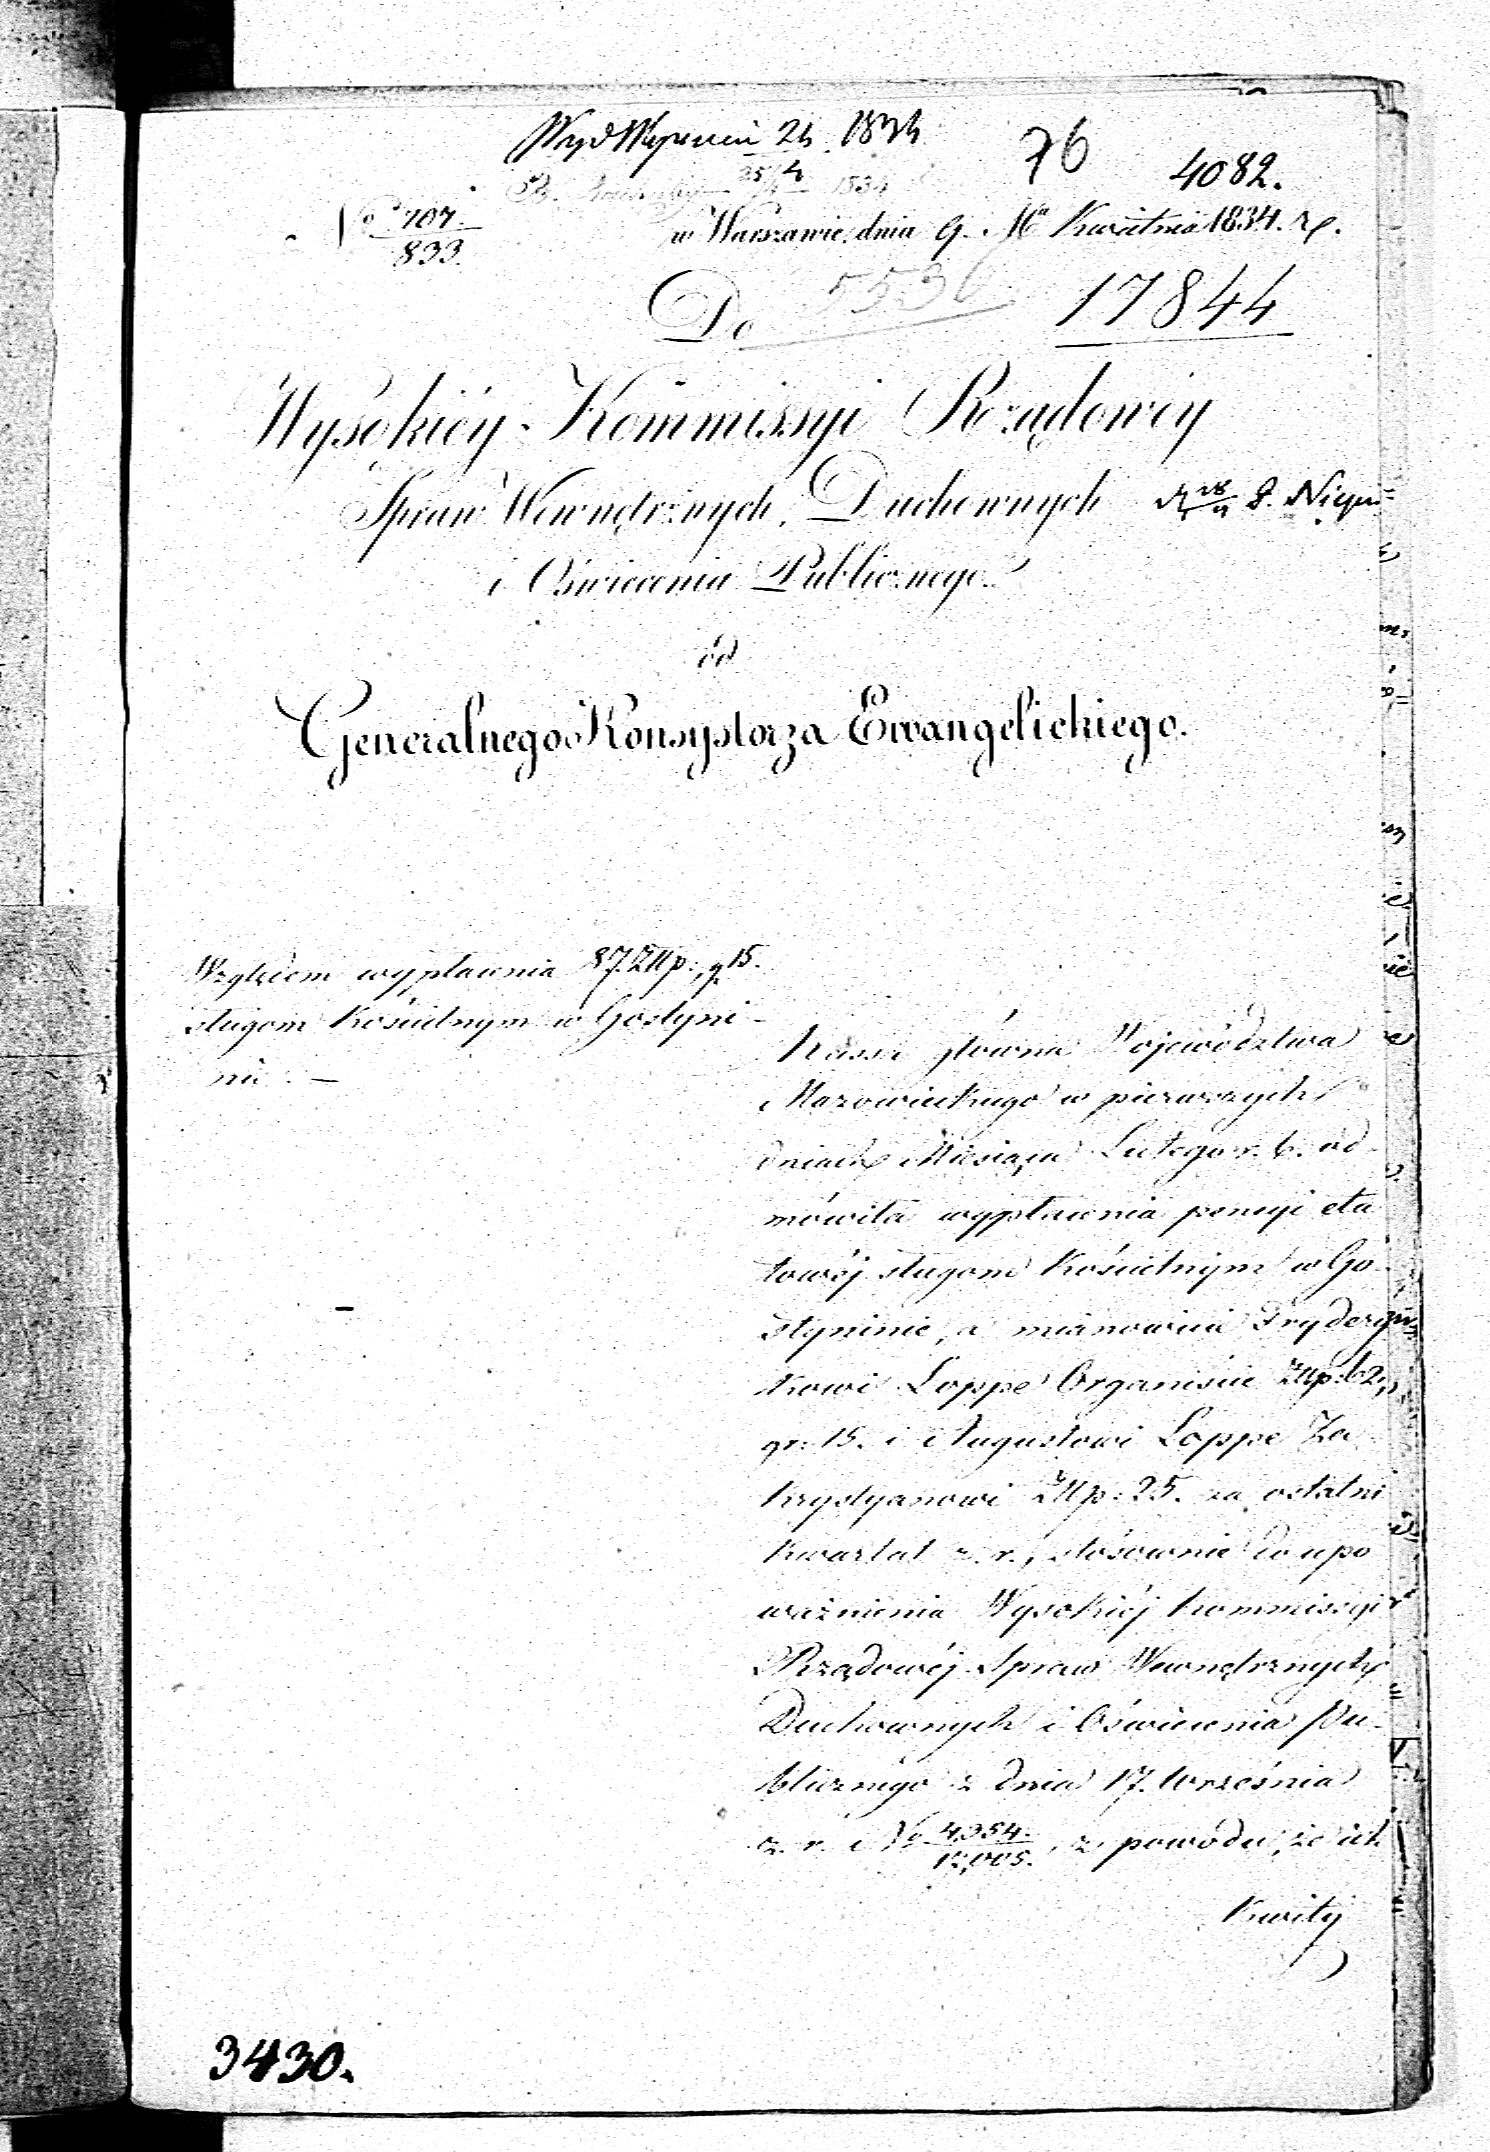 24 1834
76
4082.
25/4 1834
No 707.
833.
w Warszawie, dnia 9. Ma Kwietnia 1834. r.
5536
Do
17844
Wysokiéy Kommissyi Rządowéy
Spraw Wewnętrznych, Duchownych
i Oświecenia Publicznego.
od
Generalnego Konsystorza Ewangelickiego.
Względem wypłacenia 87. Złlp: g. 15.
sługom Kościelnym w Gostyni-
nie. —
Kassa główna Województwa
Mazowieckiego w pierwszych
dniach Miesiąca Lutego r. b. od
mówiła wypłacenia pensyi eta
towéj sługom Kościelnym w Go-
styninie, a mianowicie Frydery
kowi Loppe Organiście Złlp: 62,
gr: 15. i Augustowi Loppe Za
krystyanowi Złlp: 25. za ostatni
kwartał z. r., stósownie do upo
ważnienia Wysokiéj Kommissyi
Rządowéj Spraw Wewnętrznych
Duchownych i Oświecenia Pu-
blicznégo z dnia 17. Września
z. r. No 4354.
12,005. , z powodu, że ich
Kwity
3430.